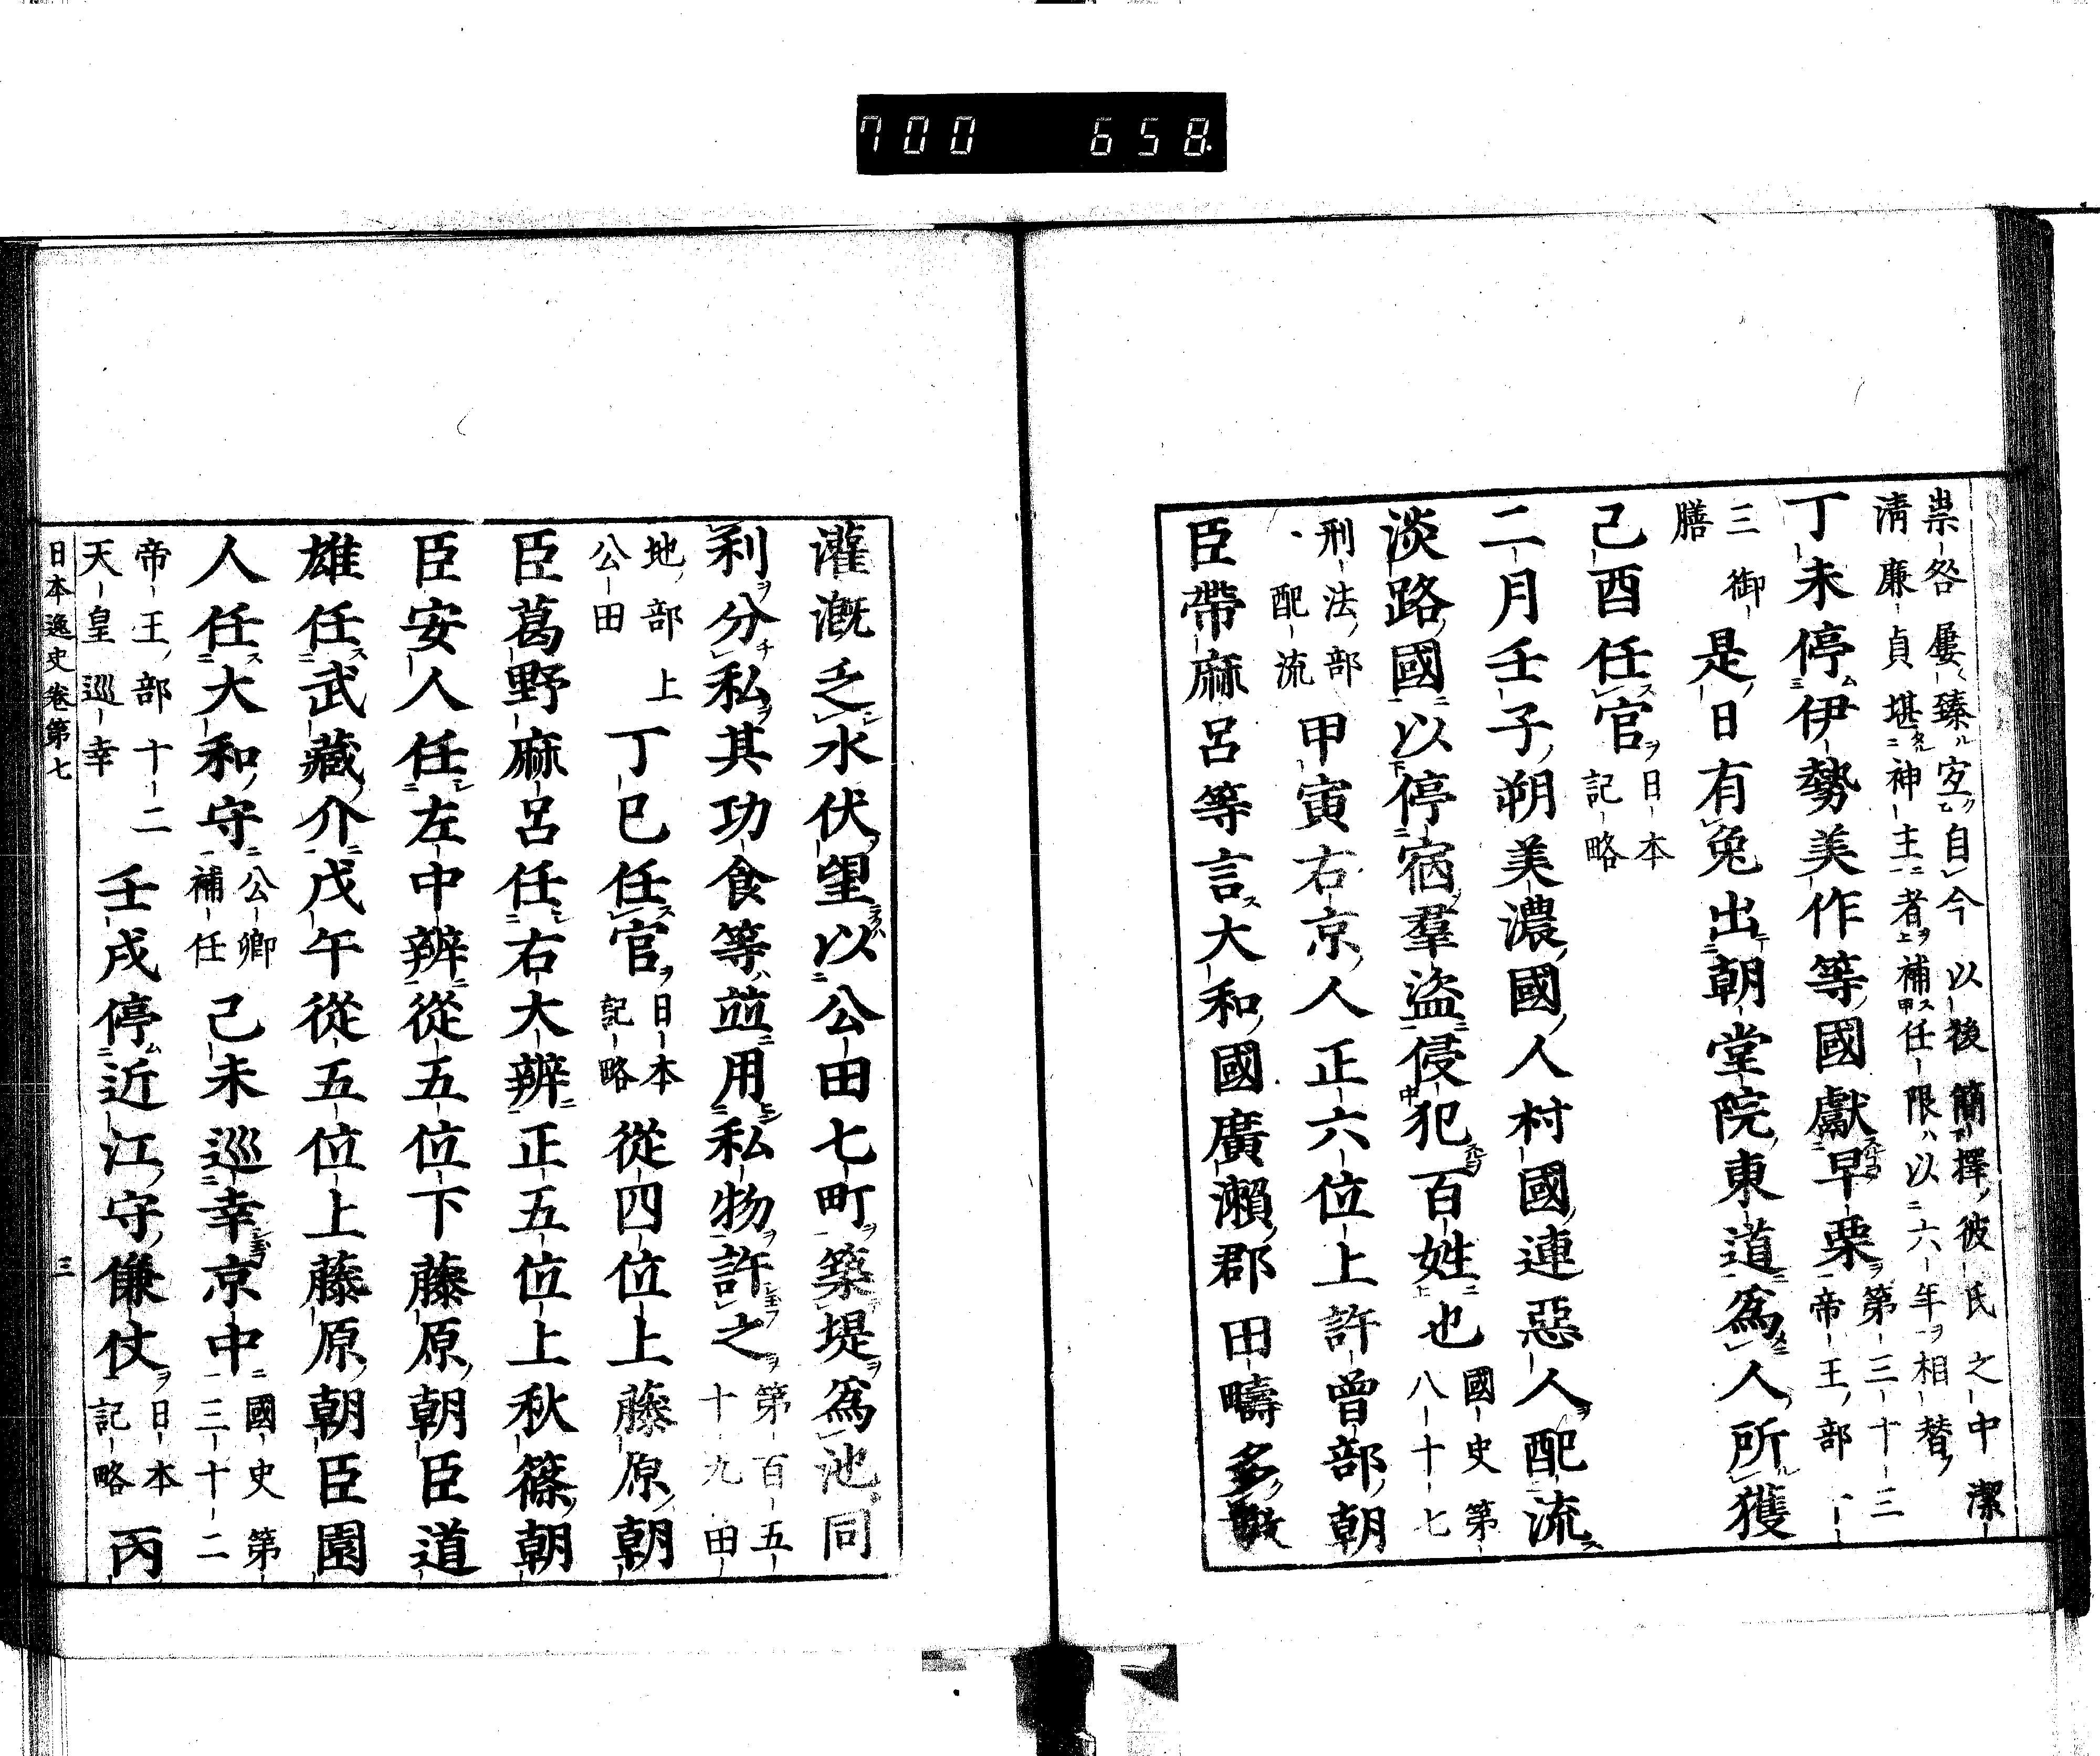 700 658
祟咎屢臻宜自今以後簡擇彼氏之中潔
清廉貞堪神主者補任限以六年相替
丁未停伊勢美作等國獻早栗第三十三
帝王部
三御
膳
是日有兔出朝堂院東道爲人所獲
己酉任官日本
記略
二月壬子朔美濃國人村國連惡人配流
淡路國以停宿羣盜侵犯百姓也國史第
八十七
刑法部
配流
甲寅右京人正六位上許曾部朝
臣帶麻呂等言大和國廣瀨郡田疇多數
灌漑乏水伏望以公田七町築堤爲池同
利分私其功食等並用私物許之第百五
十九田
地部上
公田
丁巳任官日本
記略
從四位上藤原朝
臣葛野麻呂任右大辨正五位上秋篠朝
臣安人任左中辨從五位下藤原朝臣道
雄任武藏介戊午從五位上藤原朝臣園
人任大和守公卿
補任
己未巡幸京中國史第
三十二
帝王部十二
天皇巡幸
壬戌停近江守傔仗日本
記略
丙
日本逸史卷第七 三